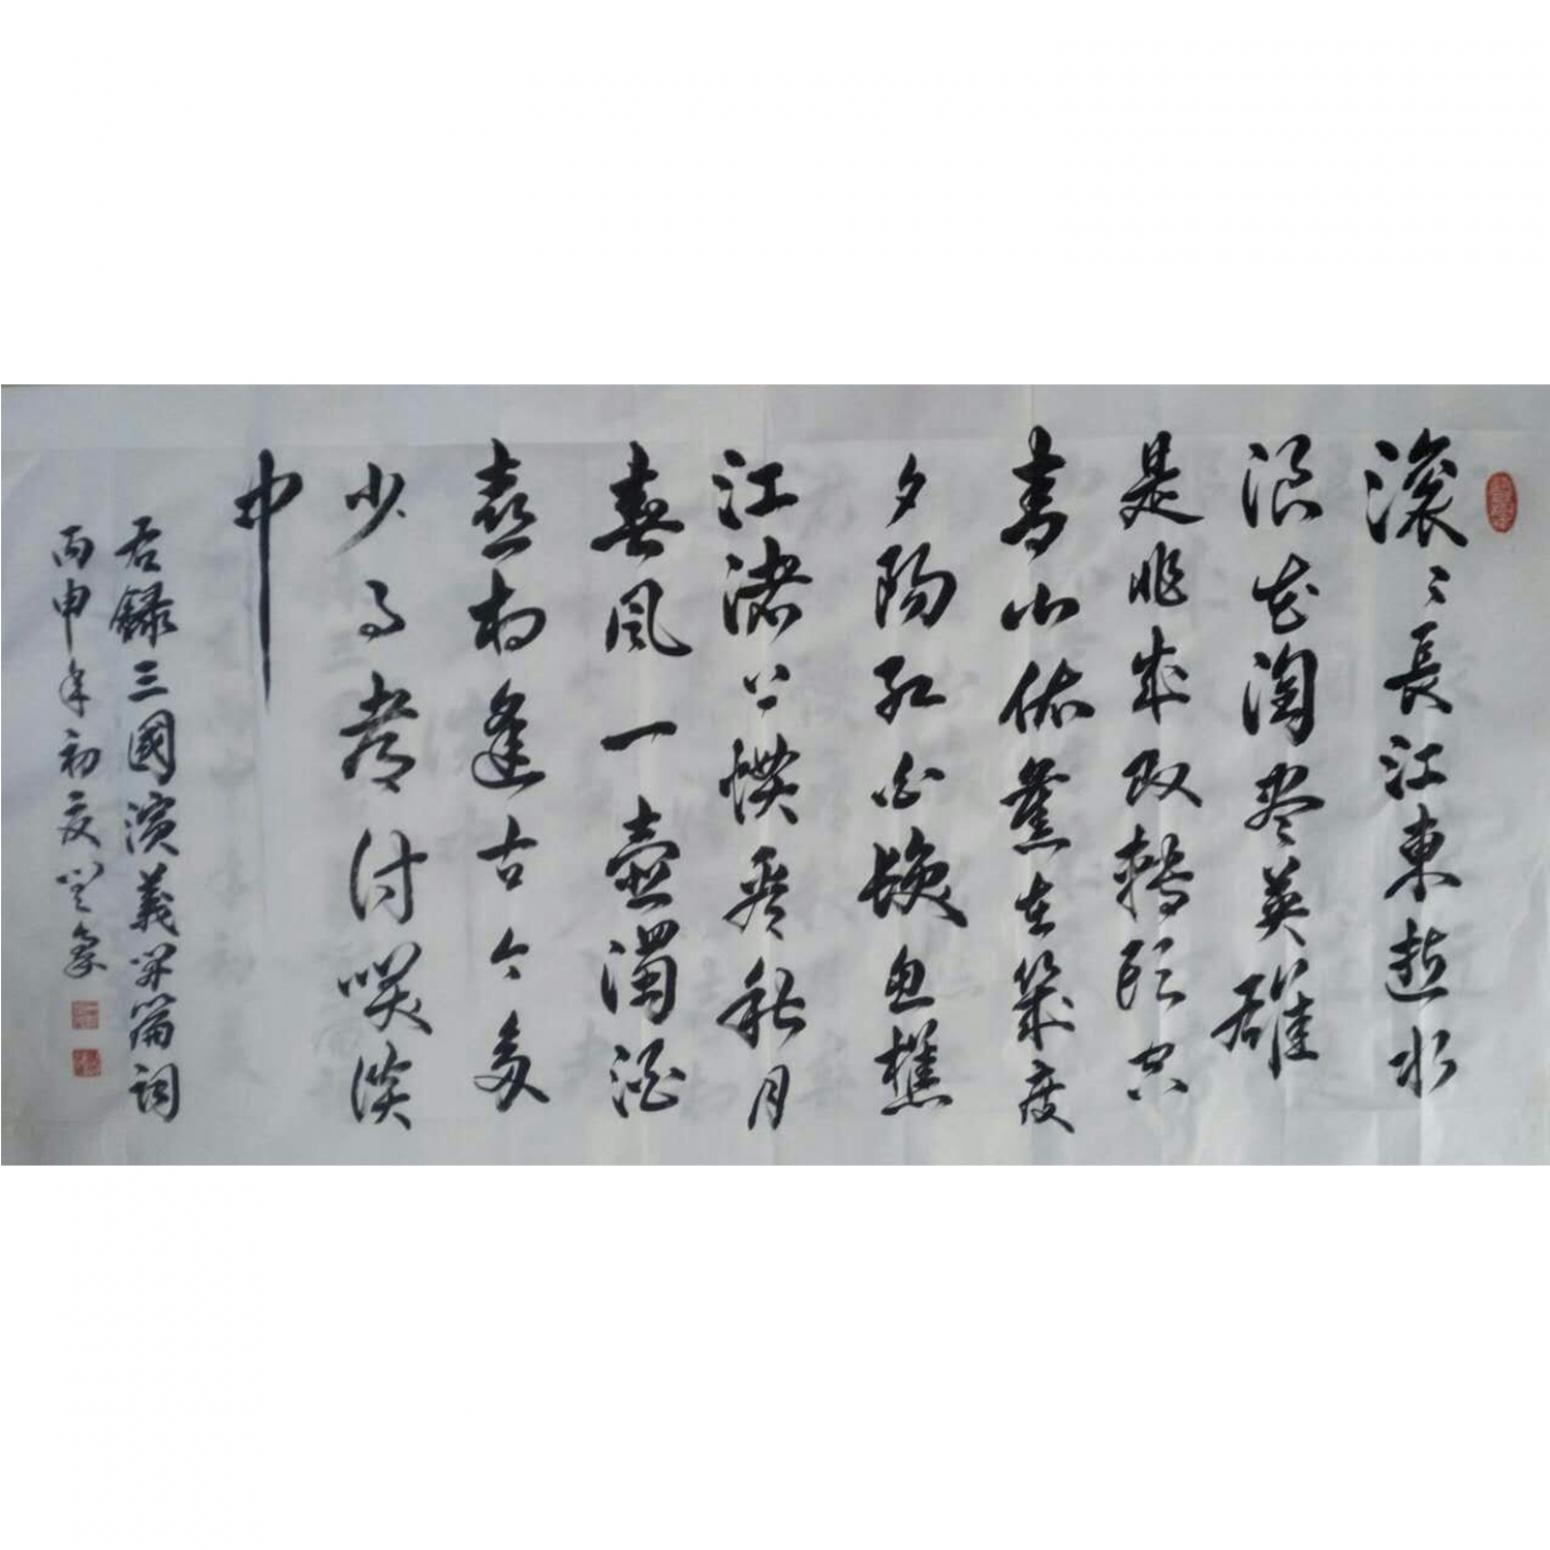 滚〻長江東逝水
浪花淘尽英雄
是非成败轉頭空
青山依舊在幾度
夕陽红白髮漁樵
江渚上慣看秋月
春風一壺濁酒
喜相逢古今多
少事都付笑談
中
右録三國演義開篇詞
丙申年初夏